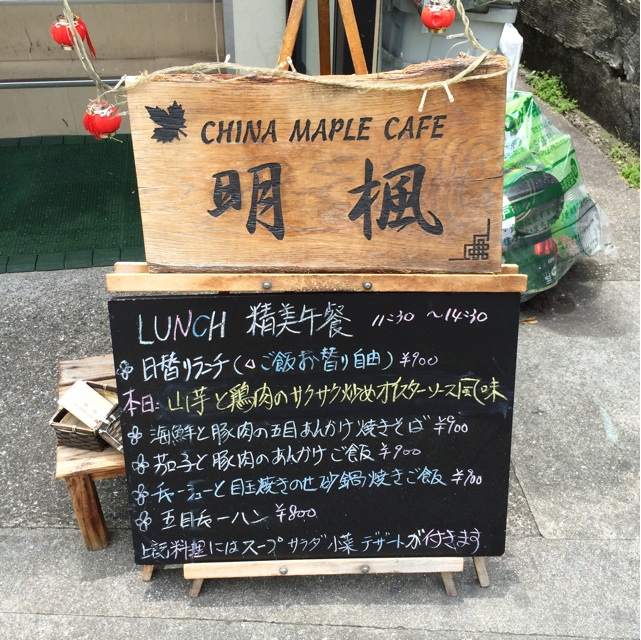 CHINA MAPLE CAFE
明楓
LUNCH 精美午餐 11:30 ~14:30
日替りランチ(ご飯お替り自由) ¥900
本日: 山芋と鶏肉のサクサク炒めオイスターソース風味
海鮮と豚肉の五目あんかけ焼きそば ¥900
茄子と豚肉のあんかけご飯 ¥900
チャーシューと目玉焼きのせ砂鍋焼きご飯 ¥900
五目チャーハン ¥800
上記料理にはスープ サラダ 小菜 デザートが付きます